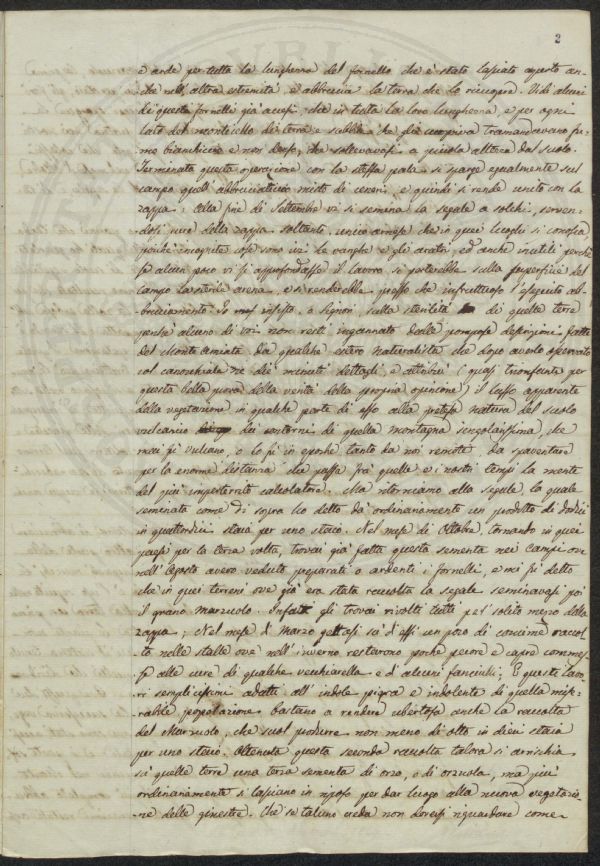 2
e arde per tutta la lunghezza del fornello che è stato lasciato aperto an-
che nell'altra estremità, e abbrucia la terra che lo ricuopre. Vidi alcuni
di questi fornelli già accesi, che in tutta la loro lunghezza, e per ogni
lato del monticello di terra e sabbia che gli cuopriva tramandavano fu-
mo bianchiccio e non denso, che sollevavasi a piccola altezza dal suolo.
Terminata questa operazione con la stessa pala si sparge egualmente sul
campo quell'abbruciaticcio misto di ceneri, e quindi si rende unito con la
zappa. Alla fine di Settembre vi si semina la segale a solchi, serven-
dosi pure della zappa soltanto, unico arnese che in quei luoghi si conosca
poichè incognite cose sono ivi le vanghe e gli aratri, ed anche inutili perchè
se alcun poco vi si approfondasse il lavoro si porterebbe sulla superficie del
campo la sterile arena, e si renderebbe presso che infruttuoso l'eseguito ab-
bruciamento. Io insisto, o Signori sulla sterilità di quelle terre
perchè alcuno di voi non resti ingannato dalle pompose descrizioni fatte
del Monte Amiata da qualche estero naturalista che dopo averlo osservato
col cannocchiale ne diè minuti dettagli, e attribuì (quasi trionfante per
questa bella prova della verità della propria opinione) il lusso apparente
della vegetazione in qualche parte di esso alla pretesa natura del suolo
vulcanico dei contorni di quella montagna singolarissima, che
mai fu vulcano, o lo fu in epoche tanto da noi remote, da spaventare
per la enorme distanza che passa frà quelle e i nostri tempi la mente
del più imperterrito calcolatore. Ma ritorniamo alla segale, la quale
seminata come di sopra ho detto dà ordinariamente un prodotto di dodici
in quattordici staia per uno staio. Nel mese di Ottobre, tornando in quei
paesi per la terza volta, trovai già fatta questa sementa nei campi ove
nell'Agosto avevo veduto preparati o ardenti i fornelli, e mi fu detto
che in quei terreni ove già era stata raccolta la segale seminavasi poi
il grano marzuolo. Infatti gli trovai rivolti tutti pel solito mezzo della
zappa; Nel mese di Marzo gettasi sù d'essi un poco di concime raccol-
to nelle stalle ove nell'inverno restarono poche pecore e capre commes-
se alle cure di qualche vecchiarella e d'alcuni fanciulli; E questi lavo-
ri semplicissimi adatti all'indole pigra e indolente di quella mise-
rabile popolazione bastano a rendere ubertosa anche la raccolta
del Marzuolo, che suol produrre non meno di otto in dieci staia
per uno staio. Ottenuta questa seconda raccolta talora si arrischia
sù quelle terre una terza sementa di orzo, o di orzuola, ma più
ordinariamente si lasciano in riposo per dar luogo alla nuova vegetazio-
ne delle ginestre. Che se taluno creda non doversi riguardare come